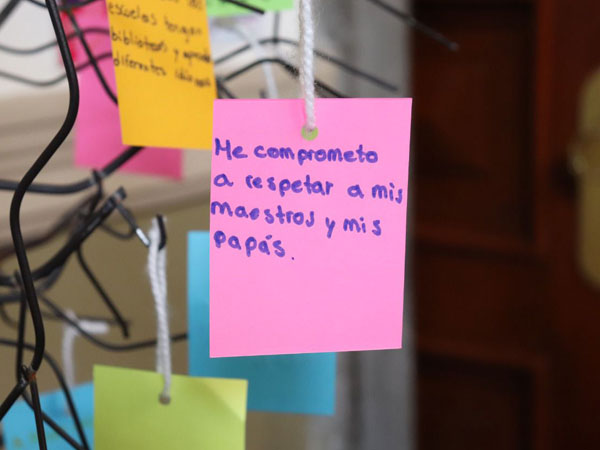 escuelas tengan
bibliotecas y aprender
diferentes idiomas
Me comprometo
a respetar a mis
maestros y mis
papás.